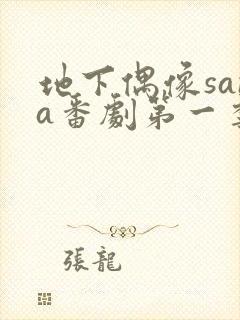 地下偶像sa
a番劇第一
張龍